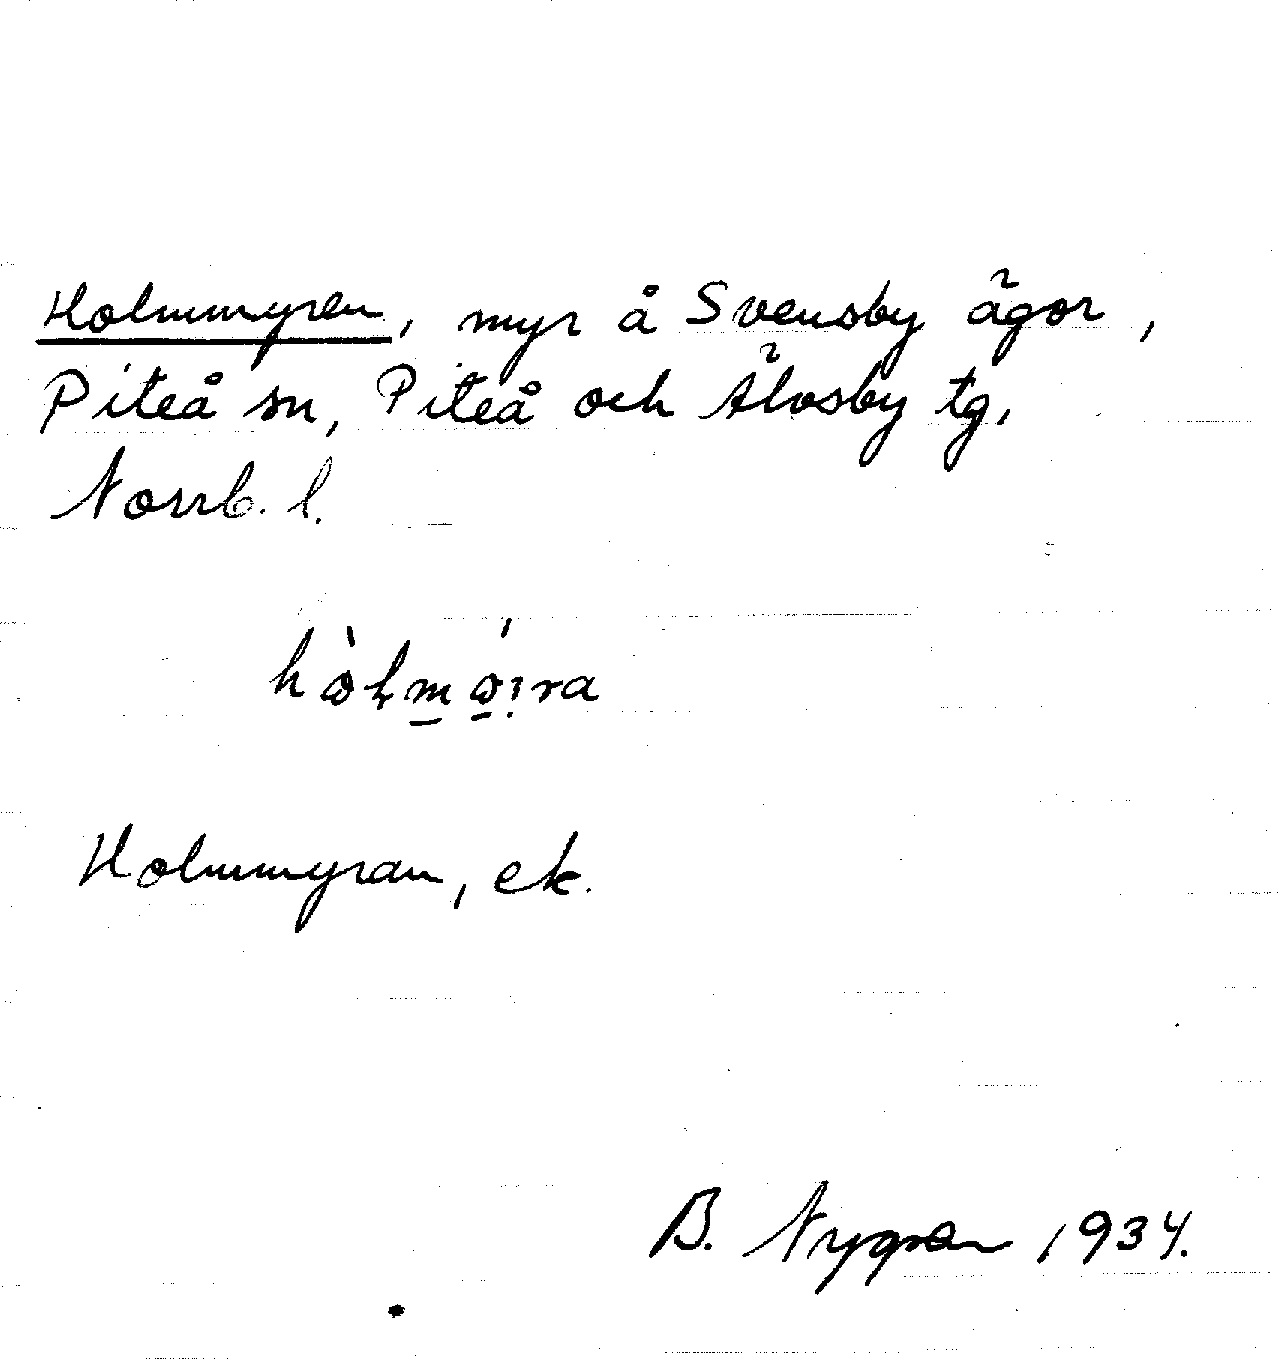 Holmmyren, myr å Svensby ägor,
Piteå sn, Piteå och Älvsby tg,
Norrb. l.
Holmmyran, ek.
B. Nygren 1934.